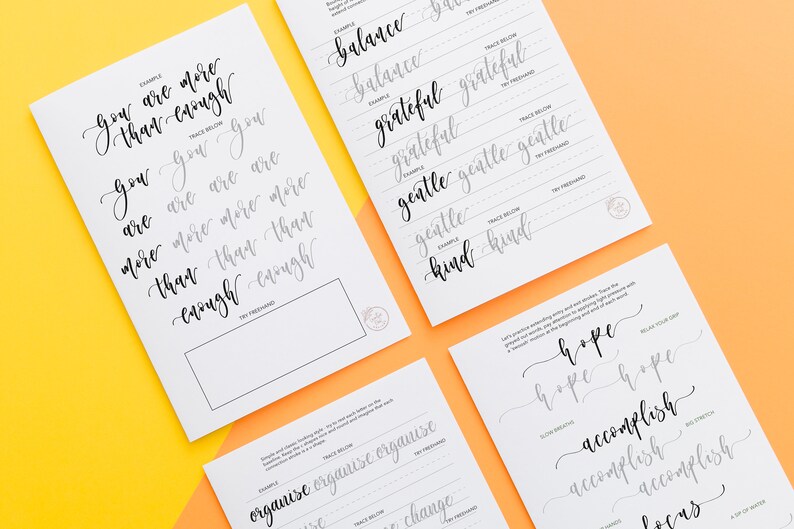 EXAMPLE
you are more
than enough
TRACE BELOW
you you you
are are are are
more more more more
than than than than
enough enough
TRY FREEHAND
height of
extend connection
EXAMPLE
TRY FREEHAND
balance
balance
EXAMPLE
TRY FREEHAND
grateful grateful
grateful
TRACE BELOW
EXAMPLE
TRY FREEHAND
gentle gentle gentle
gentle
TRACE BELOW
TRY FREEHAND
EXAMPLE
kind kind
Simple and classic looking style - try to rest each letter on the
baseline. Keep the
shapes nice and round and imagine that each
connection stroke is a u shape.
TRACE BELOW
TRY FREEHAND
EXAMPLE
organise organise organise
TRACE BELOW
change
TRY FREEHAND
Let's practice extending entry and exit strokes. Trace the
greyed out words, pay attention to applying light pressure with
a 'swoosh' motion at the beginning and end of each word.
hope
RELAX YOUR GRIP
hope hope
SLOW BREATHS
accomplish
BIG STRETCH
accomplish accomplish
HANDS
focus
A SIP OF WATER